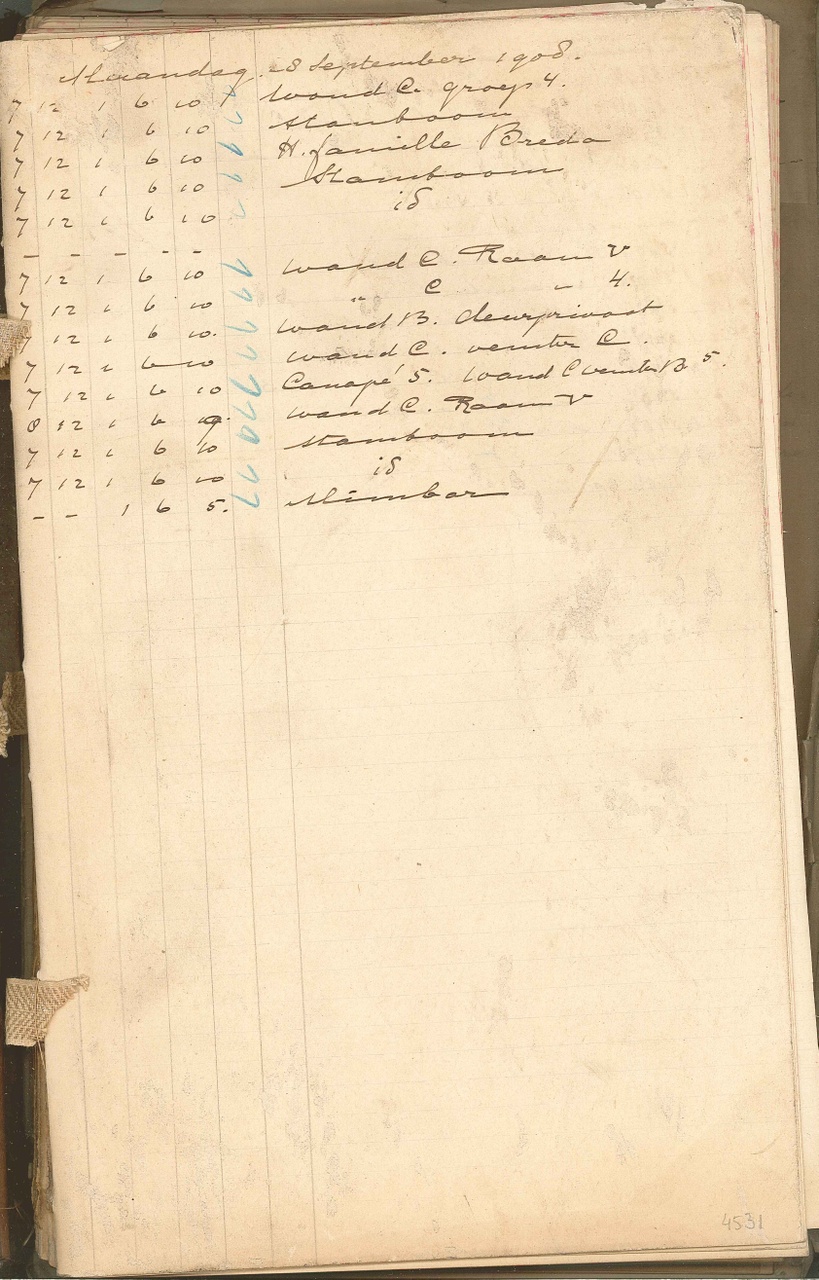 Maandag 28 September 1908.
7 12 1 6 10 wand C. groep 4.
7 12 1 6 10 Stamboom
7 12 1 6 10 H. familie Breda
7 12 1 6 10 Stamboom
7 12 1 6 10 id
– – – – –
7 12 1 6 10 wand C. Raam V
7 12 1 6 10 " C " 4.
7 12 1 6 10. wand B. deurprivaat
7 12 1 6 10 wand C. venster C.
7 12 1 6 10 Canapé 5. wand C venster B 5.
8 12 1 6 9. wand C. Raam V
7 12 1 6 10 Stamboom
7 12 1 6 10 id
– – 1 6 5. Mimbar
4531